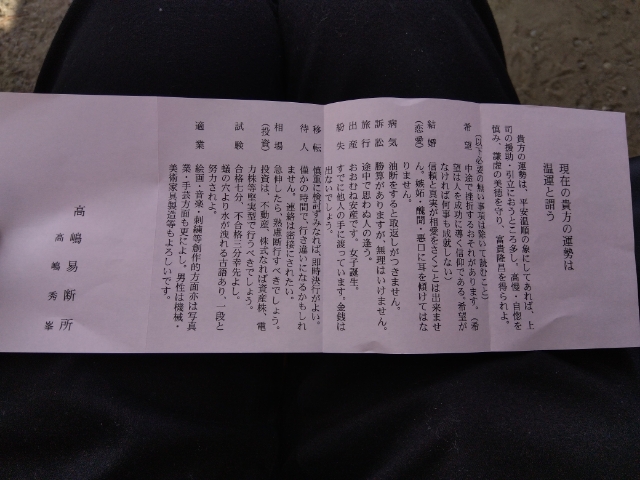 現在の貴方の運勢は
温運と謂う
貴方の運勢は、平安温順の象にしてあれば、上
司の援助・引立におうところ多し、高慢・自惚を
慎み、謙虚の美徳を守り、富貴隆昌を得られよ。
(以下必要の無い事項は除いて読むこと)
希望 中途で挫折するおそれがあります。(希
望は人を成功に導く信仰である。希望が
なければ何事も成就しない)
結婚 信頼と真実が相愛を築くことは出来ませ
(恋愛) ん。嫉妬・醜聞・悪口に耳を傾けてはな
りません。
病気 油断をすると取返しがつきません。
訴訟 勝算がありますが、無理はいけません。
旅行 途中で思わぬ人の逢う。
出産 おおむね安産です。女子誕生。
紛失 すでに他人の手に渡っています。金銭は
出ないでしょう。
移転 慎重に検討ずみなれば、即時決行がよい。
待人 僅かの時間で、行き違いになるかもしれ
ません。連絡は密接にされたい。
相場 急伸したら、熟慮断行すべきでしょう。
(投資) 投資は、不動産、株式なれば資産株、電
力株等堅実型で行うべきでしょう。
試験 合格七分、不合格三分幸先よし。
蟻の穴より水が洩れる古語あり、一段と
努力されよ。
適業 絵画・音楽・刺繍等創作的方面亦は写真
業・手芸方面も更によし。男性は機械・
美術家具製造等もよろしいです。
高嶋易断所
高嶋秀峯